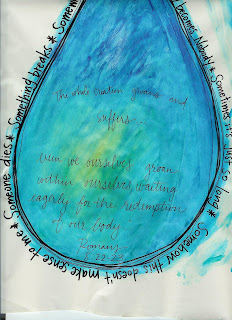 the whole creation groans and
suffers.
even we ourselves groan
within ourselves, waiting
eagerly for the redemption
of our body
Romans
8:22-23
becomes Nobody * Sometimes it's just so long * Somehow this doesn't make sense to me * Someone dies * Something breaks * Somew